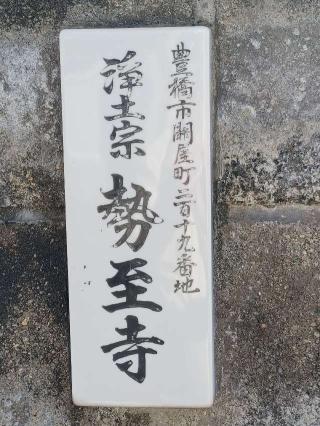 豊橋市関屋町二百十九番地
浄土宗 勢至寺